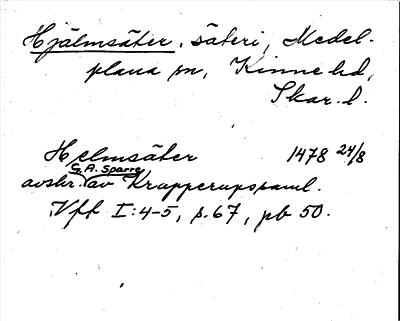 Hjälmsäter, säteri, Medel-
plana sn, Kinne hd,
Skar. l.
Helmsäter 1478 24/8
G. A. Sparre
avskr. av Krapperupssaml.
Vft I:4-5, s. 67, pb 50.